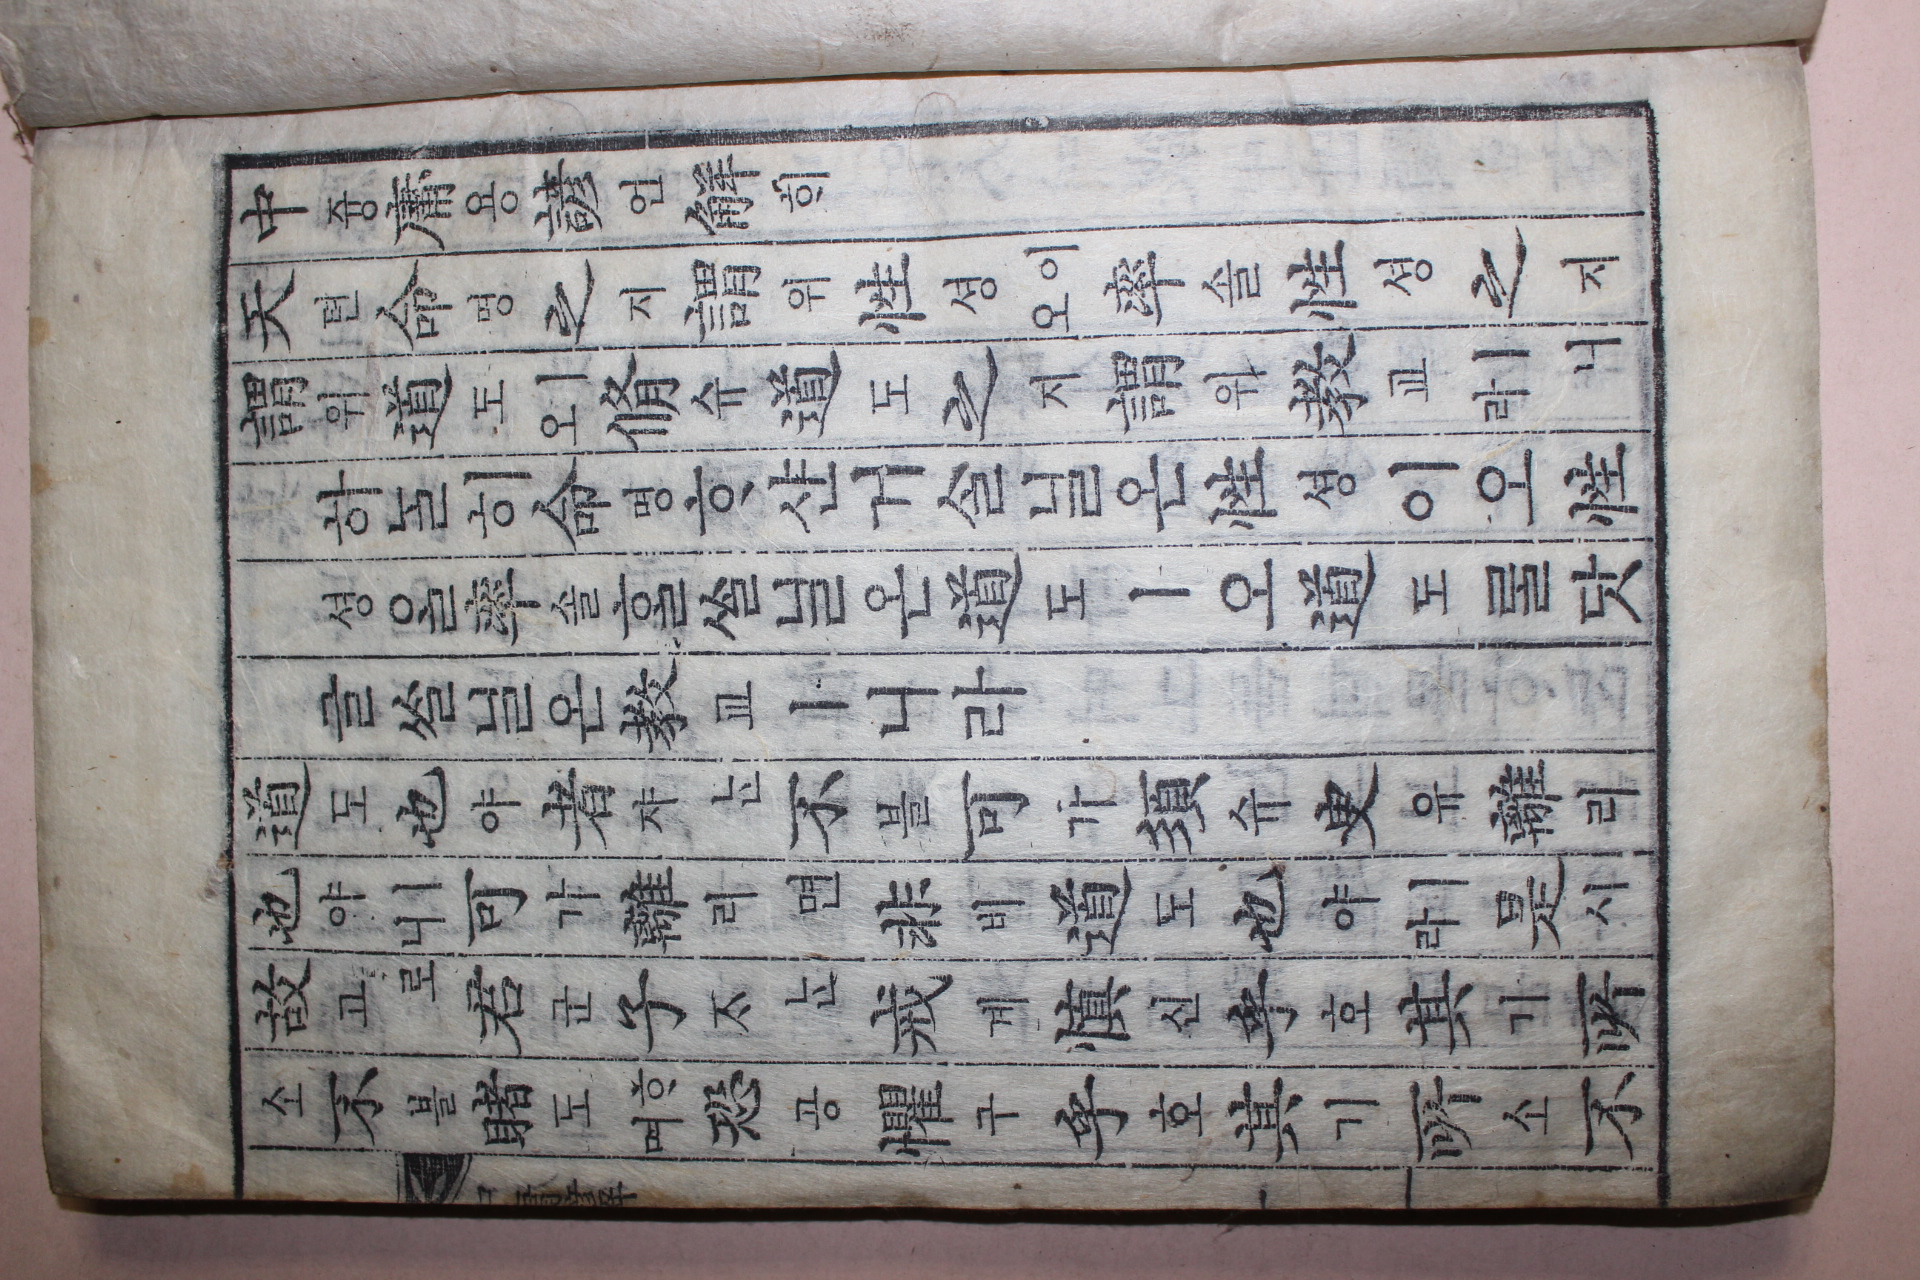 中듕庸용諺언解ᄒᆡ
天텬命명之지謂위性셩이오率솔性셩之지
謂위道도ㅣ오脩슈道도之지謂위教교ㅣ니라
하ᄂᆞᆯ히命명ᄒᆞ샨거ᄉᆞᆯ닐온性셩이오性
셩을率솔ᄒᆞᆯᄭᅳᆯ닐온道도ㅣ오道도ᄅᆞᆯ닷
글ᄭᅳᆯ닐온教교ㅣ니라
道도也야者쟈ᄂᆞᆫ不블可가須슈臾유離리
也야ㅣ니可가離리면非비道도也야ㅣ라是시
故고로君군子ᄌᆞᄂᆞᆫ戒계慎신乎호其기所
소不블睹도ᄒᆞ며恐공懼구乎호其기所소不